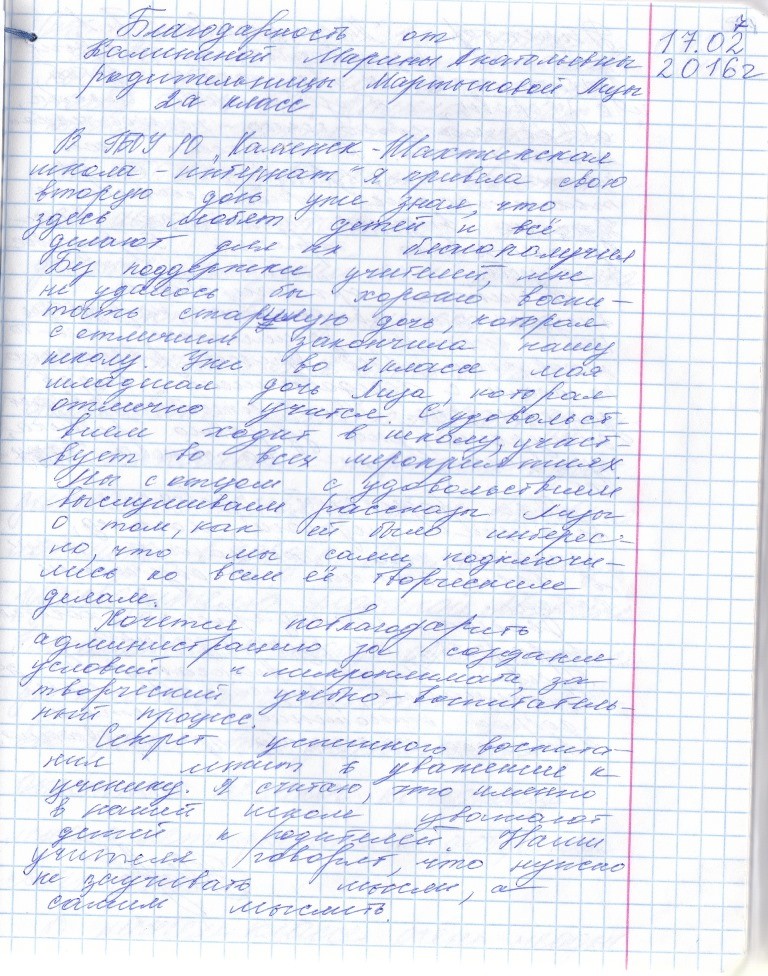 7
17.02
2016г
Благодарность от
Калининой Марины Анатольевны
родительницы Мартыновой Лизы
2а класс
В ГБОУ РО „Каменск-Шахтинская
школа-интернат" я привела свою
вторую дочь уже зная, что
здесь любят детей и всё
делают для их благополучия
Без поддержки учителей, мне
не удалось бы хорошо воспи-
тать старшую дочь, которая
с отличием закончила нашу
школу. Уже во 2 классе моя
младшая дочь Лиза, которая
отлично учится. С удовольст-
вием ходит в школу, участ-
вует во всех мероприятиях
Мы с отцом с удовольствием
выслушиваем рассказы Лизы
о том, как ей было интерес-
но, что мы сами подключи-
лись ко всем её творческим
делам.
Хочется поблагодарить
администрацию за создание
условий и микроклимата, за
творческий учебно-воспитатель-
ный процесс.
Секрет успешного воспита-
ния лежит в уважении к
ученику. Я считаю, что именно
в нашей школе уважают
детей и родителей. Наши
учителя говорят, что нужно
не заучивать мысли, а
самим мыслить.